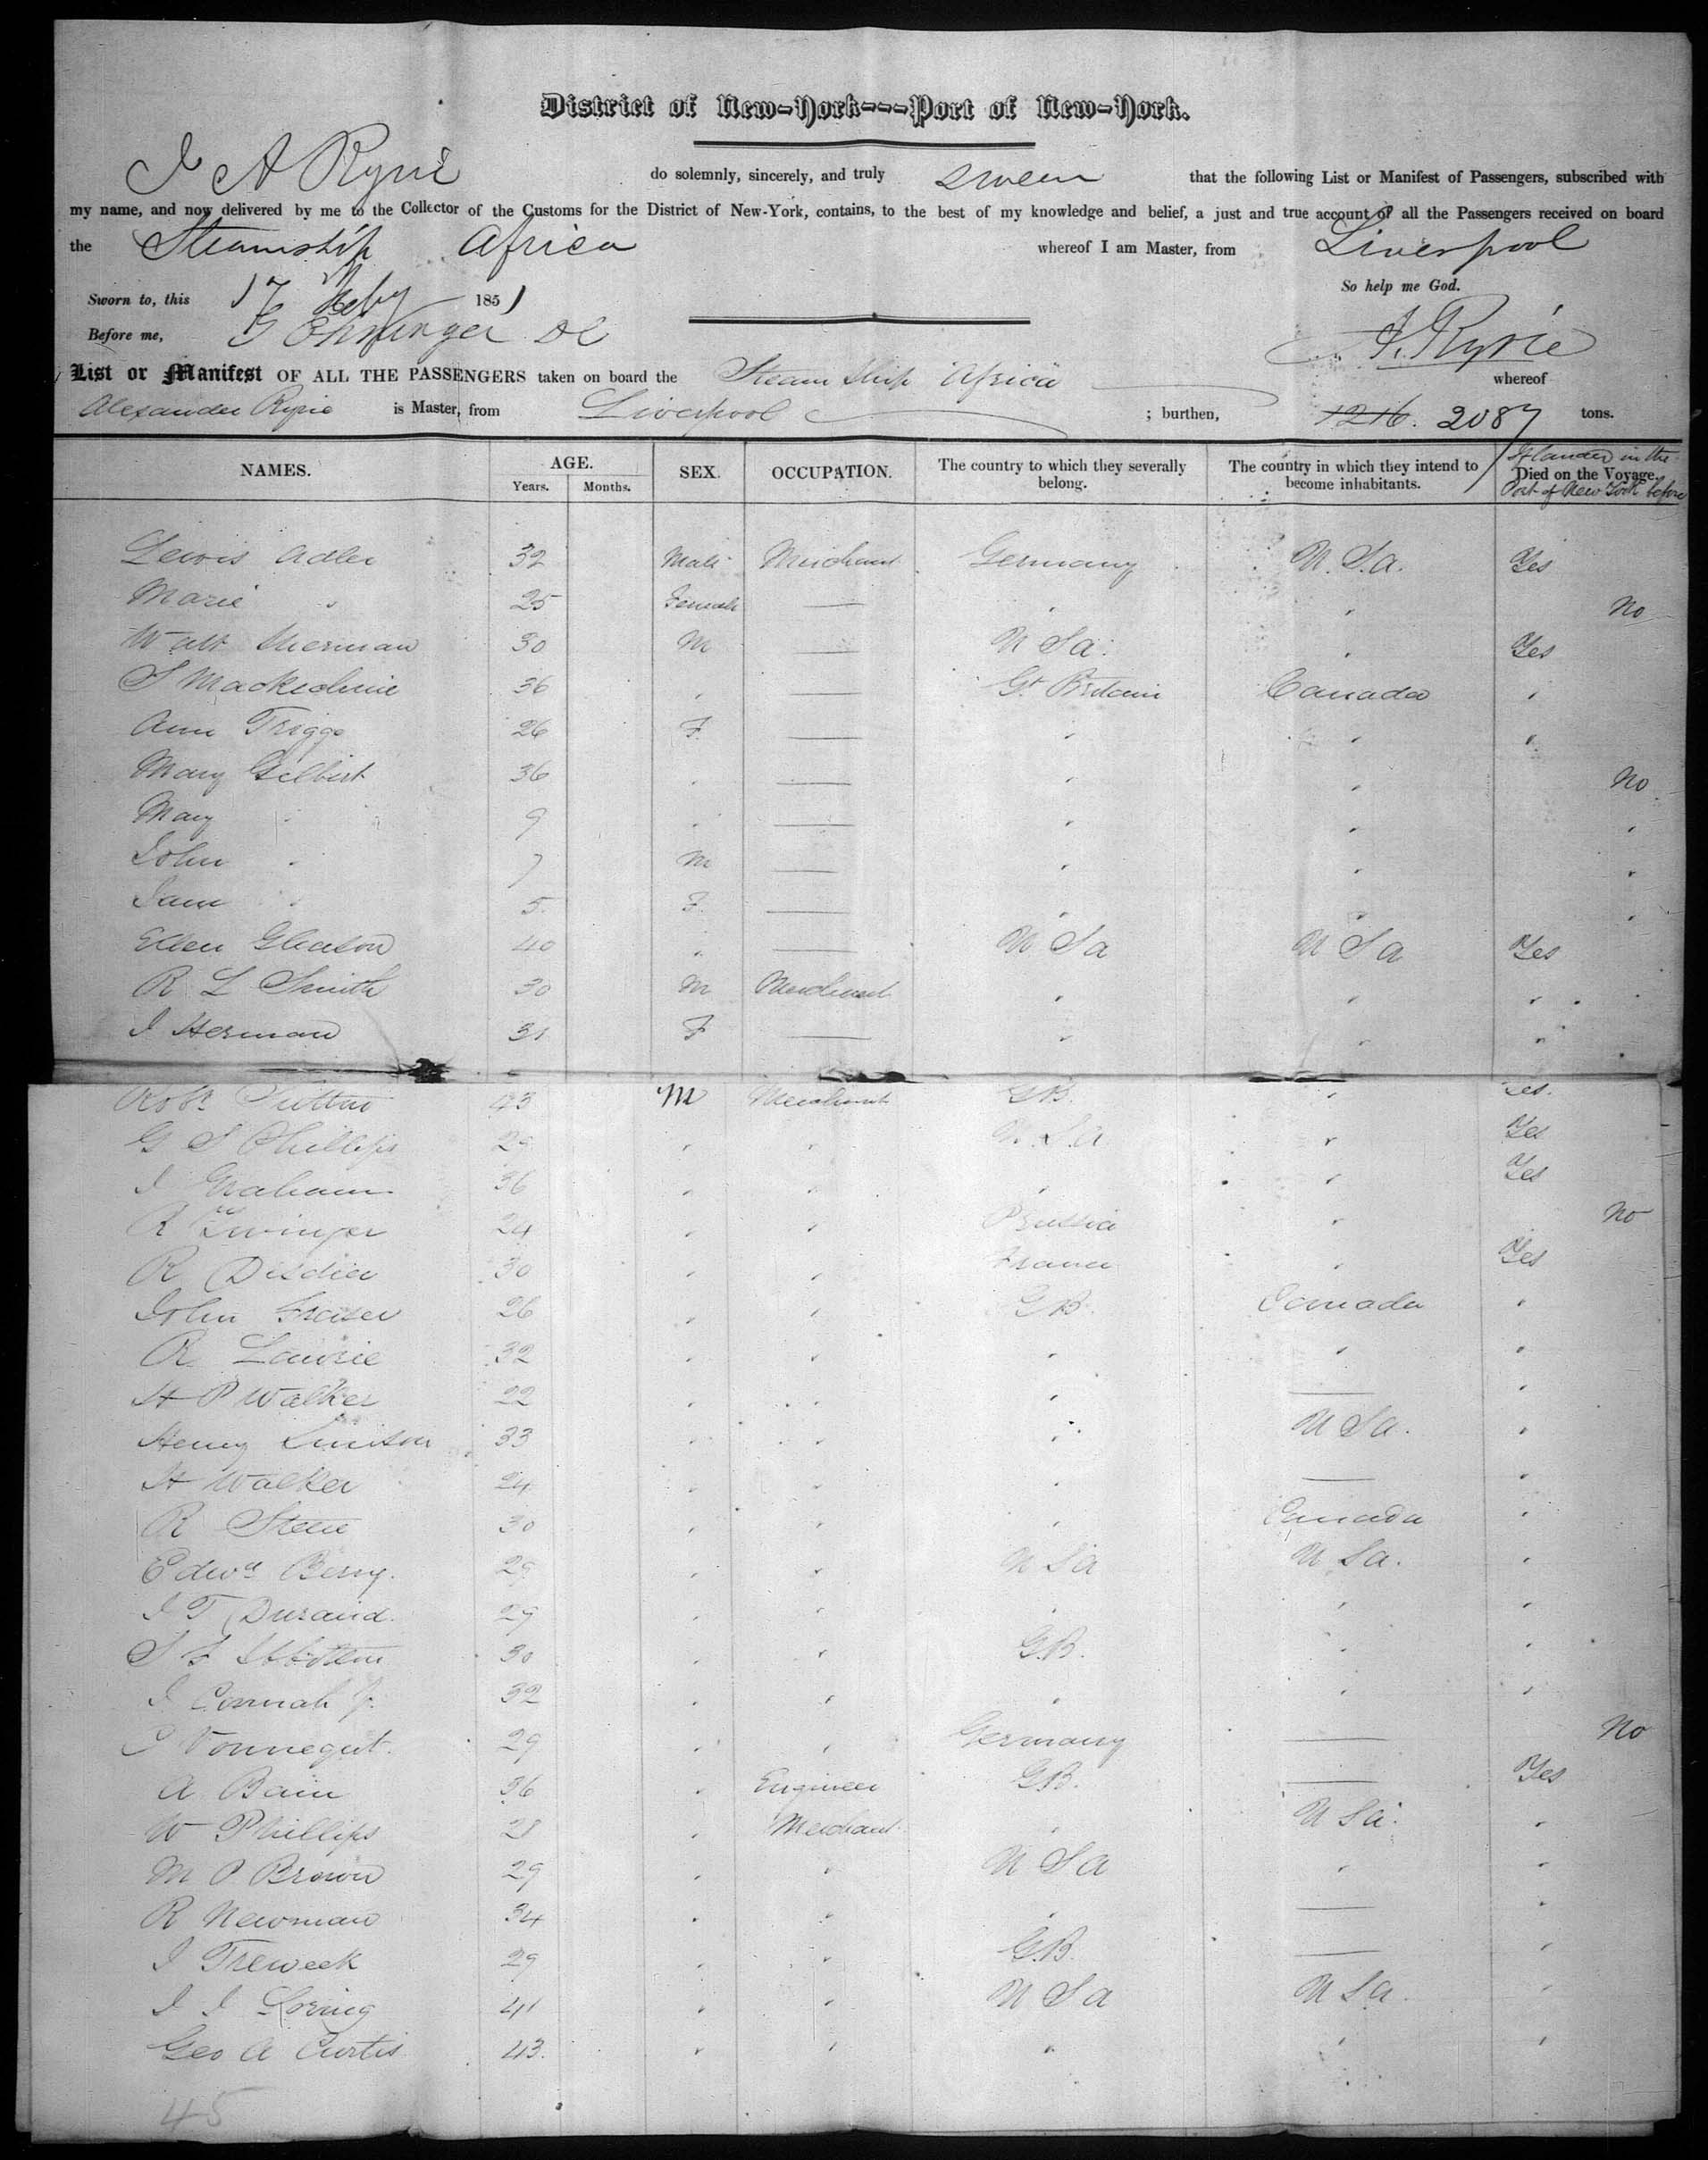 District of New-York---Port of New-York.
I A Ryrie do solemnly, sincerely, and truly swear that the following List or Manifest of Passengers, subscribed with
my name, and now delivered by me to the Collector of the Customs for the District of New-York, contains, to the best of my knowledge and belief, a just and true account of all the Passengers received on board
the Steamship Africa whereof I am Master, from Liverpool
So help me God.
Sworn to, this 17 Feby 1851
Before me, G Ehninger DC
A. Ryrie
List or Manifest OF ALL THE PASSENGERS taken on board the Steam Ship Africa whereof
Alexander Ryrie is Master, from Liverpool ; burthen, 1216. 2087 tons.
NAMES. AGE. Years. Months. SEX. OCCUPATION. The country to which they severally belong. The country in which they intend to become inhabitants. Died on the Voyage. If landed in the Port of New York before
Lewis Adler 32 Male Merchant Germany U.S.a. Yes
Marie " 25 Female — " " No
Walt Sherman 30 M — U Sa. " Yes
S 36 " — Gt Britain Canada "
Ann Triggs 26 F. — " " "
Mary Gilbert 36 " — " " No
Mary " 9 " — " " "
John " 7 M — " " "
Jane " 5. F. — " " "
Ellen Gleason 40 " — U Sa U Sa Yes
R L Smith 30 M Merchant " " "
I Herman 31 F — " " "
Robt Sutton 43 M Merchant GB. " Yes.
G S Phillips 29 " " U.S.a " Yes
J Graham 36 " " " " Yes
R Zwinger 24 " " Prussia " No
R Disdier 30 " " France " Yes
John Fraser 26 " " GB. Canada "
R Lawrie 32 " " " " "
H P Walker 22 " " " — "
Henry 33 " " " U Sa. "
H Walker 24 " " " — "
R Steele 30 " " " Canada "
Edwd Berry. 29 " " U Sa U Sa. "
J T Durand. 29 " " " " "
S 30 " " G.B. " "
J Connah Jr. 32 " " " " "
Vonnegut. 29 " " Germany — No
A Bain 36 " Engineer G.B. — Yes
W Phillips 28 " Merchant " U Sa. "
M P Brown 29 " " U S a " "
R Newman 34 " " " — "
J Treweek 29 " " G.B. — "
J J Loring 41 " " U S a U Sa. "
Geo A Curtis 43. " " " " "
45